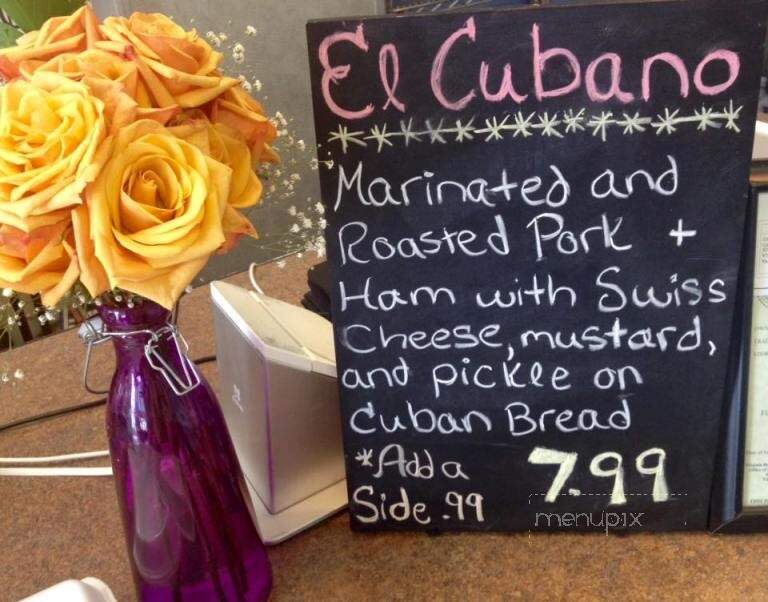 El Cubano
Marinated and
Roasted Pork +
Ham with Swiss
Cheese, mustard,
and pickle on
Cuban Bread
*Add a
Side .99
7.99
menupix